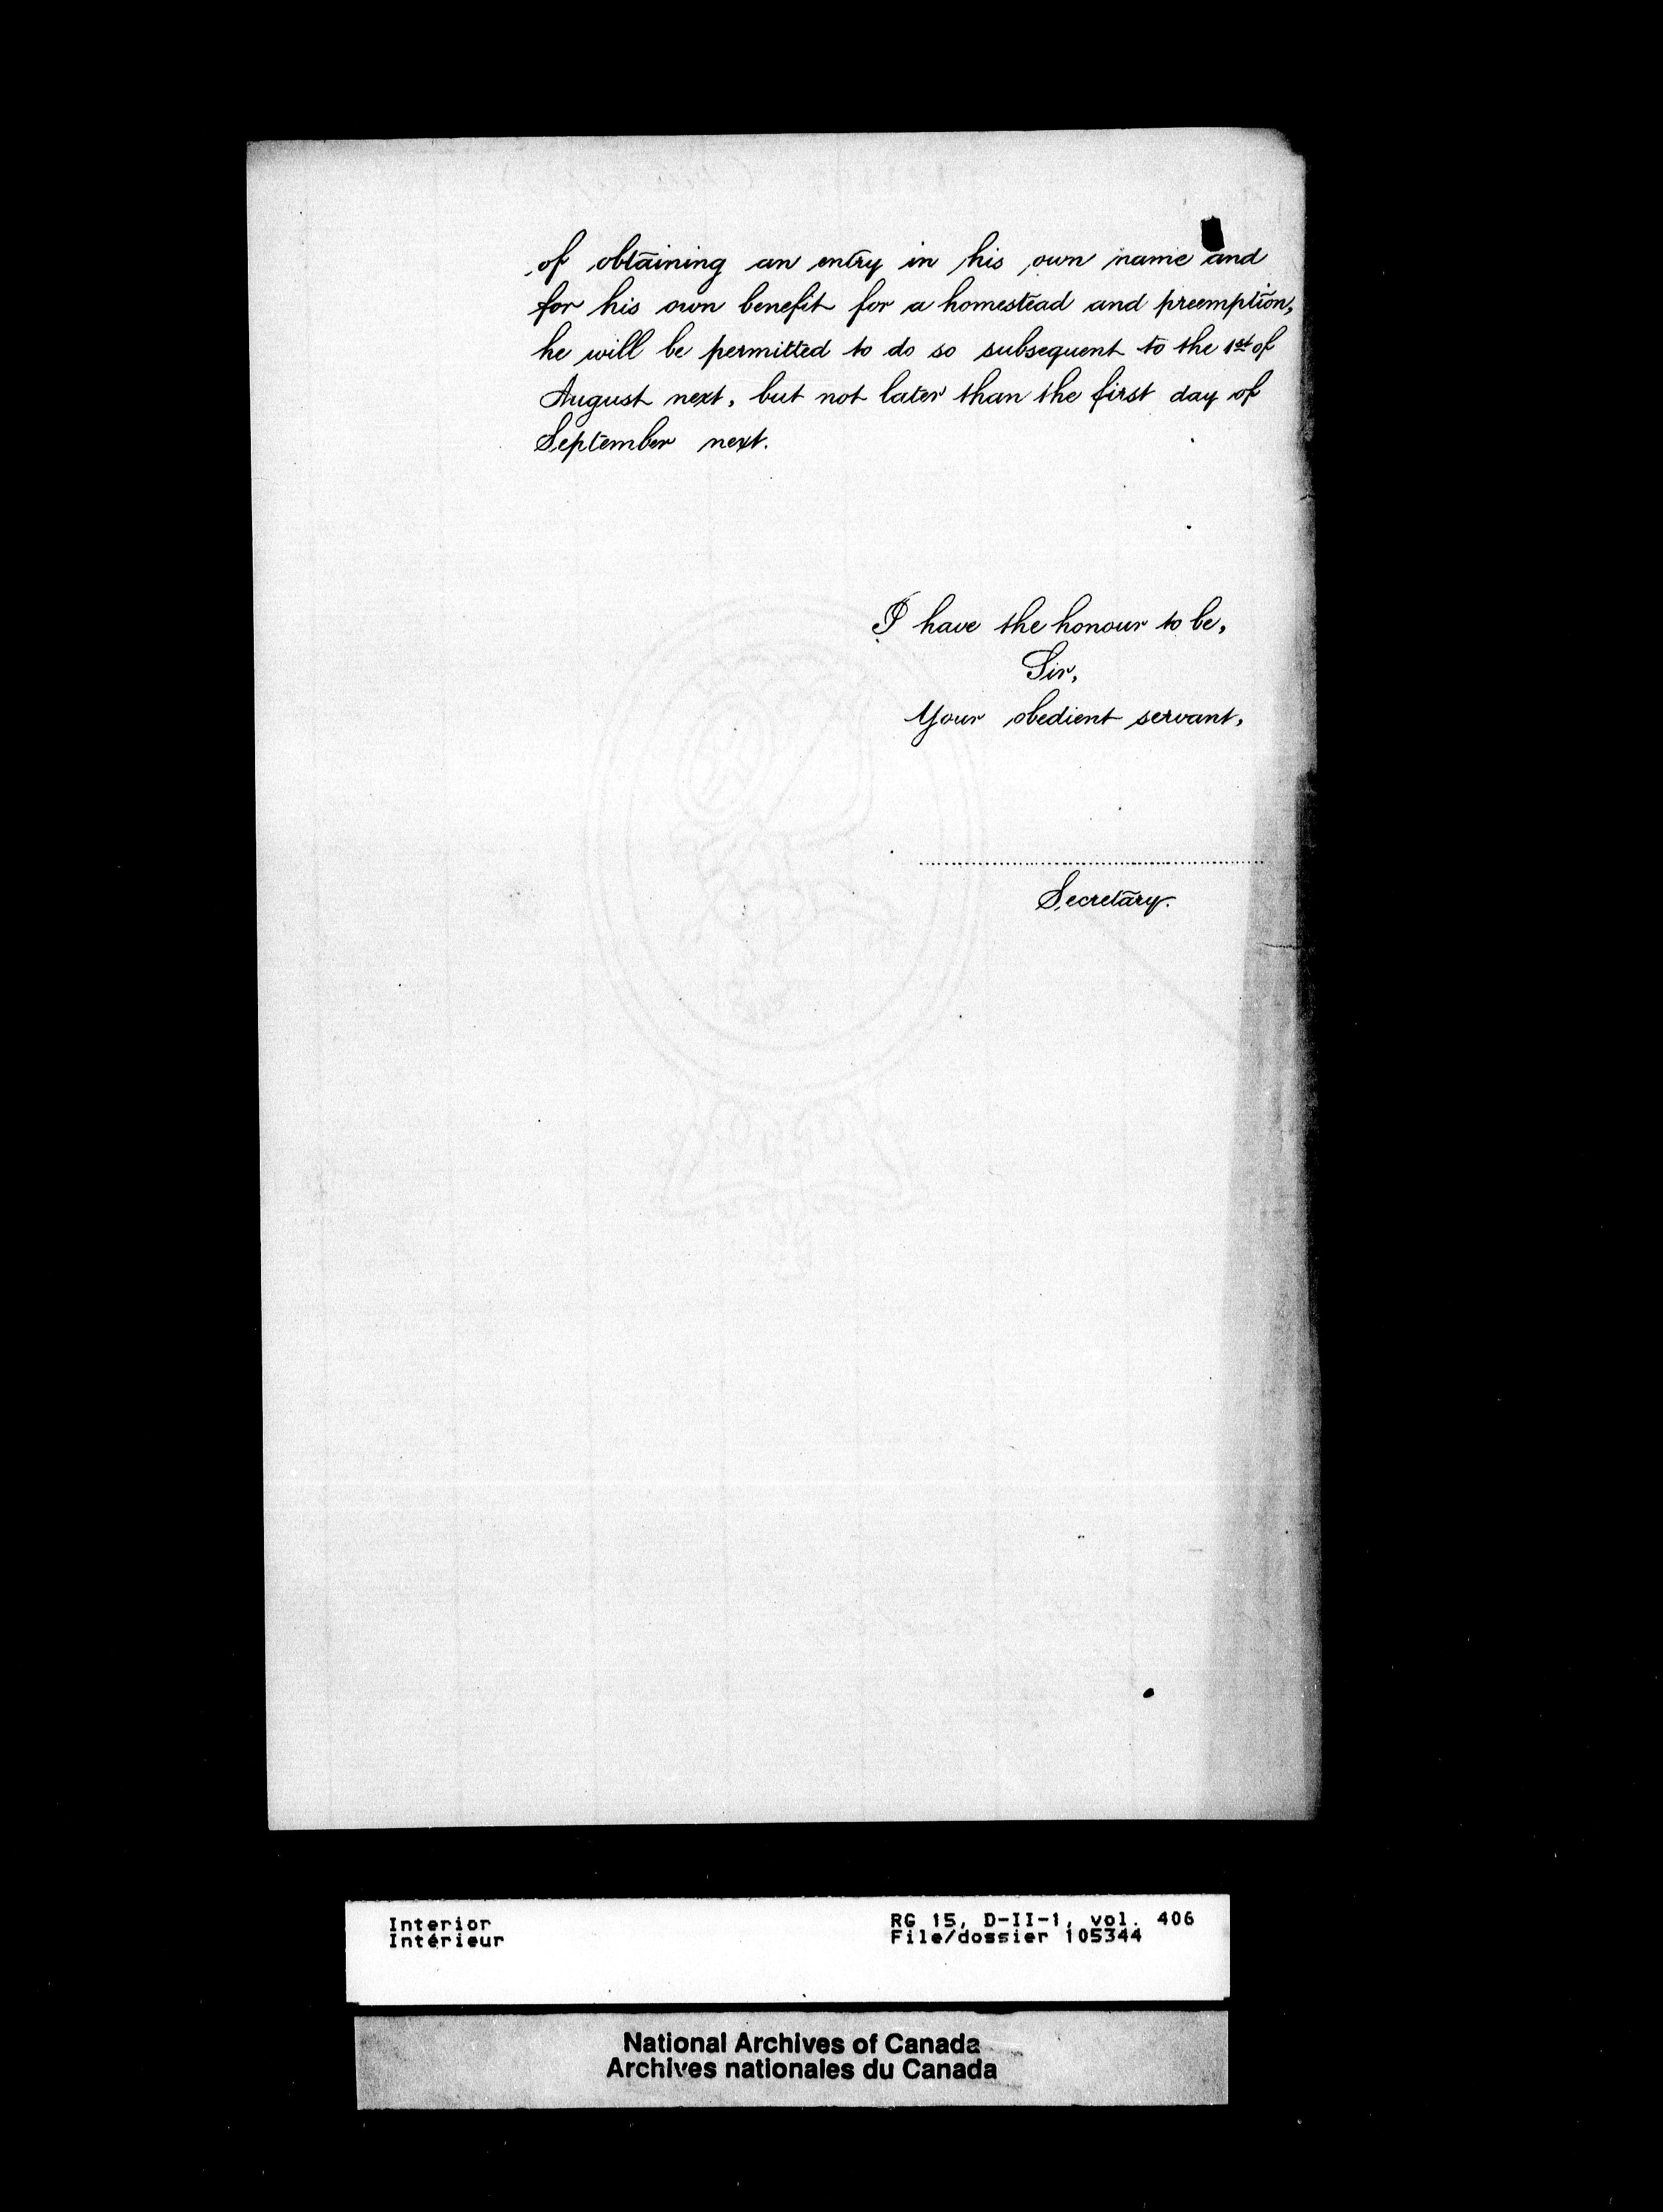 of obtaining an entry in his own name and
for his own benefit for a homestead and preemption,
he will be permitted to do so subsequent to the 1st of
August next, but not later than the first day of
September next.
I have the honour to be,
Sir,
Your obedient servant,
Secretary.
Interior
Intérieur
RG 15, D-II-1, vol. 406
File/dossier 105344
National Archives of Canada
Archives nationales du Canada